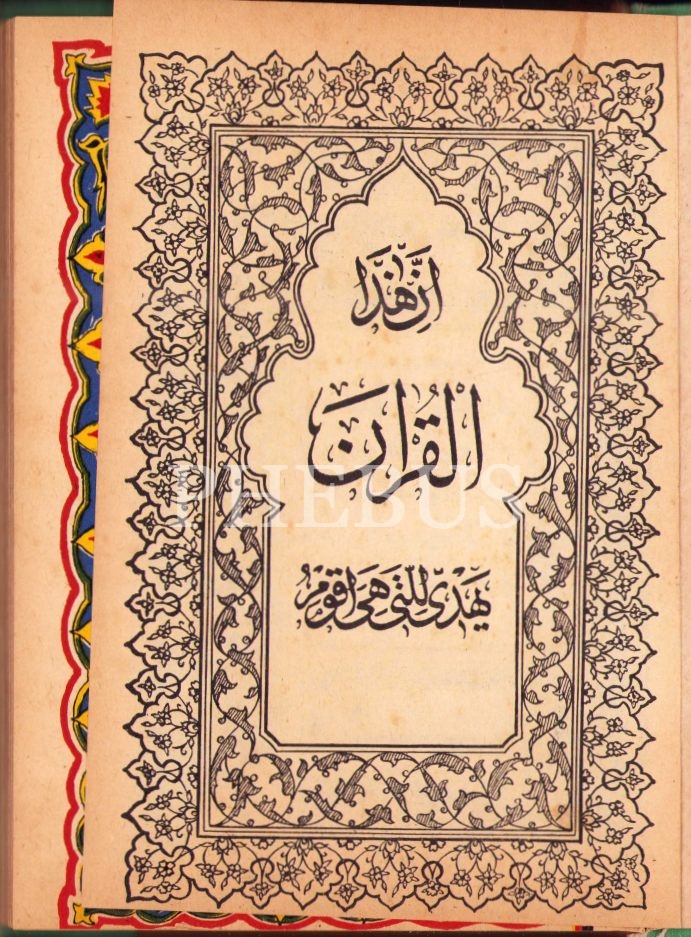 اِنَّ هٰذَا
الْقُرْاٰنَ
يَهْدٖى لِلَّتٖى هِىَ اَقْوَمُ
PHEBUS